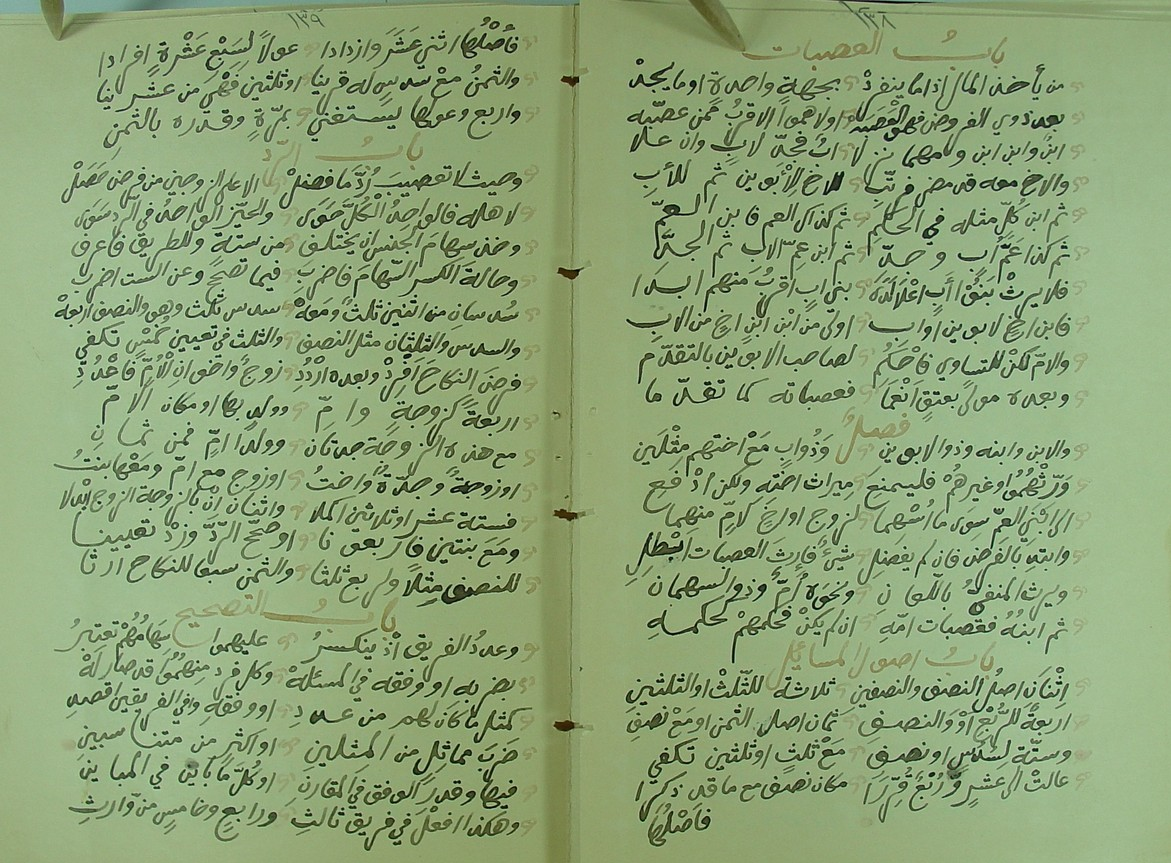 ١٣٨
باب العصبات
من يأخذ المال اذا ما ينفرد بجهة واحدة او ما يجد
بعد ذوي الفروض فهو العصبه اولاهموا الاقرب ممن عصبه
ابن وابن ابن ومهما نزلا اب فجد لاب وان علا
والاخ معه قد مضى فرتب للاخ لابوين ثم للأب
ثم ابن كل مثله في الحكم ثم كذاك العم فابن العم
ثم كذا عم أب وجد ثم ابن عم الاب ثم الجد
فلا يرث بنو أب اعلا لدى بني اب اقرب منهم ابدا
فابن اخ لابوين او اب اولى من ابن ابن اخ من الاب
والام لكن للتساوي فاحكم لصاحب الابوين بالتقدم
وبعده مولى بعتق انعما فعصباته كما تقدما
فصل
والابن وابنه وذو الابوين وذو اب مع اختهم مثلين
ورثهموا وغيرهم فليمنع ميراث اخته ولكن ادفع
الى ابني العم سوى ما اسهما لزوج او اخ لام منهما
وابتد بالفرض فان لم يفضل شيء فارث العصبات ابطل
ويرث المنفي باللعان ونحوه أم وذو السهمان
ثم ابنه فعصبات امه ان لم يكن فحكمهم كحكمه
باب اصول المسائل
اثنان اصل النصف والنصفين ثلاثة للثلث او الثلثين
اربعة للربع أو والنصف ثمان اصل الثمن او مع نصف
وستة لسدس او نصف مع ثلث او ثلثين تكفي
عالت الى عشر وربع قررا مكان نصف مع ما قد ذكرا
فاصلها
١٣٩
فأصلها اثني عشر وازدادا عولا لسبع عشرة افرادا
والثمن مع سدس له قرينا او ثلثين فهي من عشرينا
واربع وعولها يستغني بمرة وقدره بالثمن
باب الرد
وحيث لا تعصيب رد ما فضل الا على الزوجين من فرض حصل
لاهله فالواحد الكل حوى والحيز الواحد في الرد سوى
وخذ سهام الجنس ان يختلف من ستة وللطريق فاعرف
وحالة الكسر السهام فاضرب فيما تصح وعن الست اضرب
سدسان من اثنين ثلث ومعه سدس ثلث وهو والنصف اربعة
والسدس والثلثان مثل النصف والثلث في تعيين خمس تكفي
فرض النكاح افرد وبعده اردد زوج واخوان الام فاعدد
اربعة كزوجة وام وولديها او مكان الام
مع هذه الزوجة جدتان وولدا ام فمن ثمان
او زوجة وجدة واخت او زوج مع ام ومعها بنت
فستة عشر او ثلاثين اكملا واثنان ان تك زوجة الزوج ابدلا
ومع بنتين فاربعونا او صحح الرد وزد تعيينا
للنصف مثلا ولربع ثلثا والثمن سبعا للنكاح ارثا
باب التصحيح
وعدد الفريق اذ ينكسر عليهموا سهامهم تعتبر
بضربه او وفقه في المسئلة وكل فرد منهموا قد صار له
كمثل ما كان لهم من عدد او وفقه وفي الفريقين اقصد
ضرب مماثل من المثلين او اكثر من متناسبين
فيها وقدر الوفق في المقارن او كل ما باين في المباين
وهكذا افعل في فريق ثالث ورابع وخامس من وارث